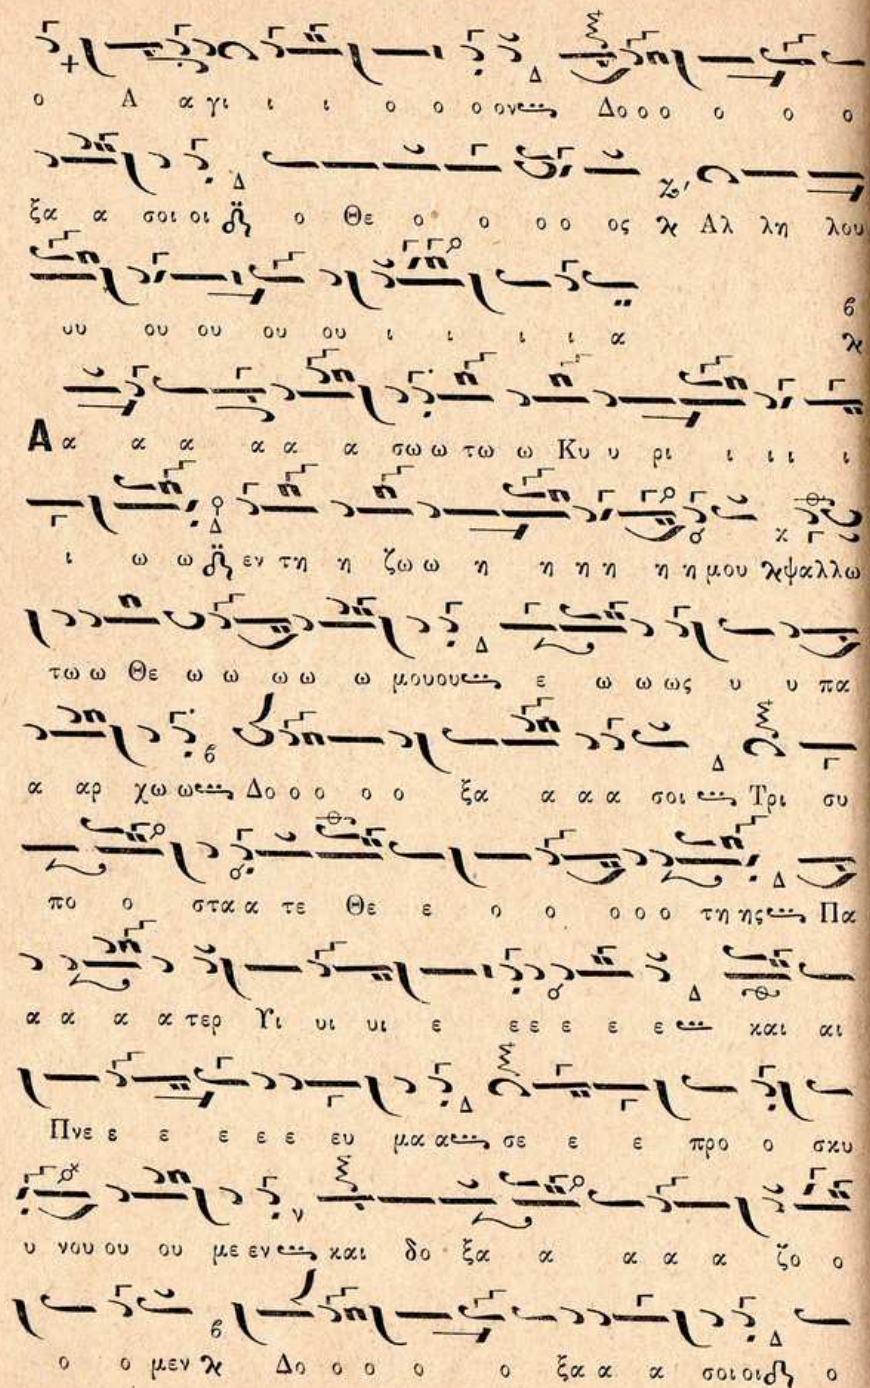 ο Α α γι ι ι ο ο ο ον Δο ο ο ο ο ο
ξα α σοι οι ο Θε ο ο ο ο ος Αλ λη λου
υυ ου ου ου ου ι ι ι ι α
Α α α α α α α σω ω τω ω Κυ υ ρι ι ι ι ι
ι ω ω εν τη η ζω ω η η η η η η μου ψαλλω
τω ω Θε ω ω ω ω ω μουου ε ω ω ως υ υ πα
α αρ χω ω Δο ο ο ο ο ξα α α α σοι Τρι συ
πο ο στα α τε Θε ε ο ο ο ο ο τη ης Πα
α α α α τερ Υι υι υι ε ε ε ε ε ε και αι
Πνε ε ε ε ε ε ευ μα α σε ε ε προ ο σκυ
υ νου ου ου με εν και δο ξα α α α α ζο ο
ο ο μεν Δο ο ο ο ο ξα α α σοι οι ο